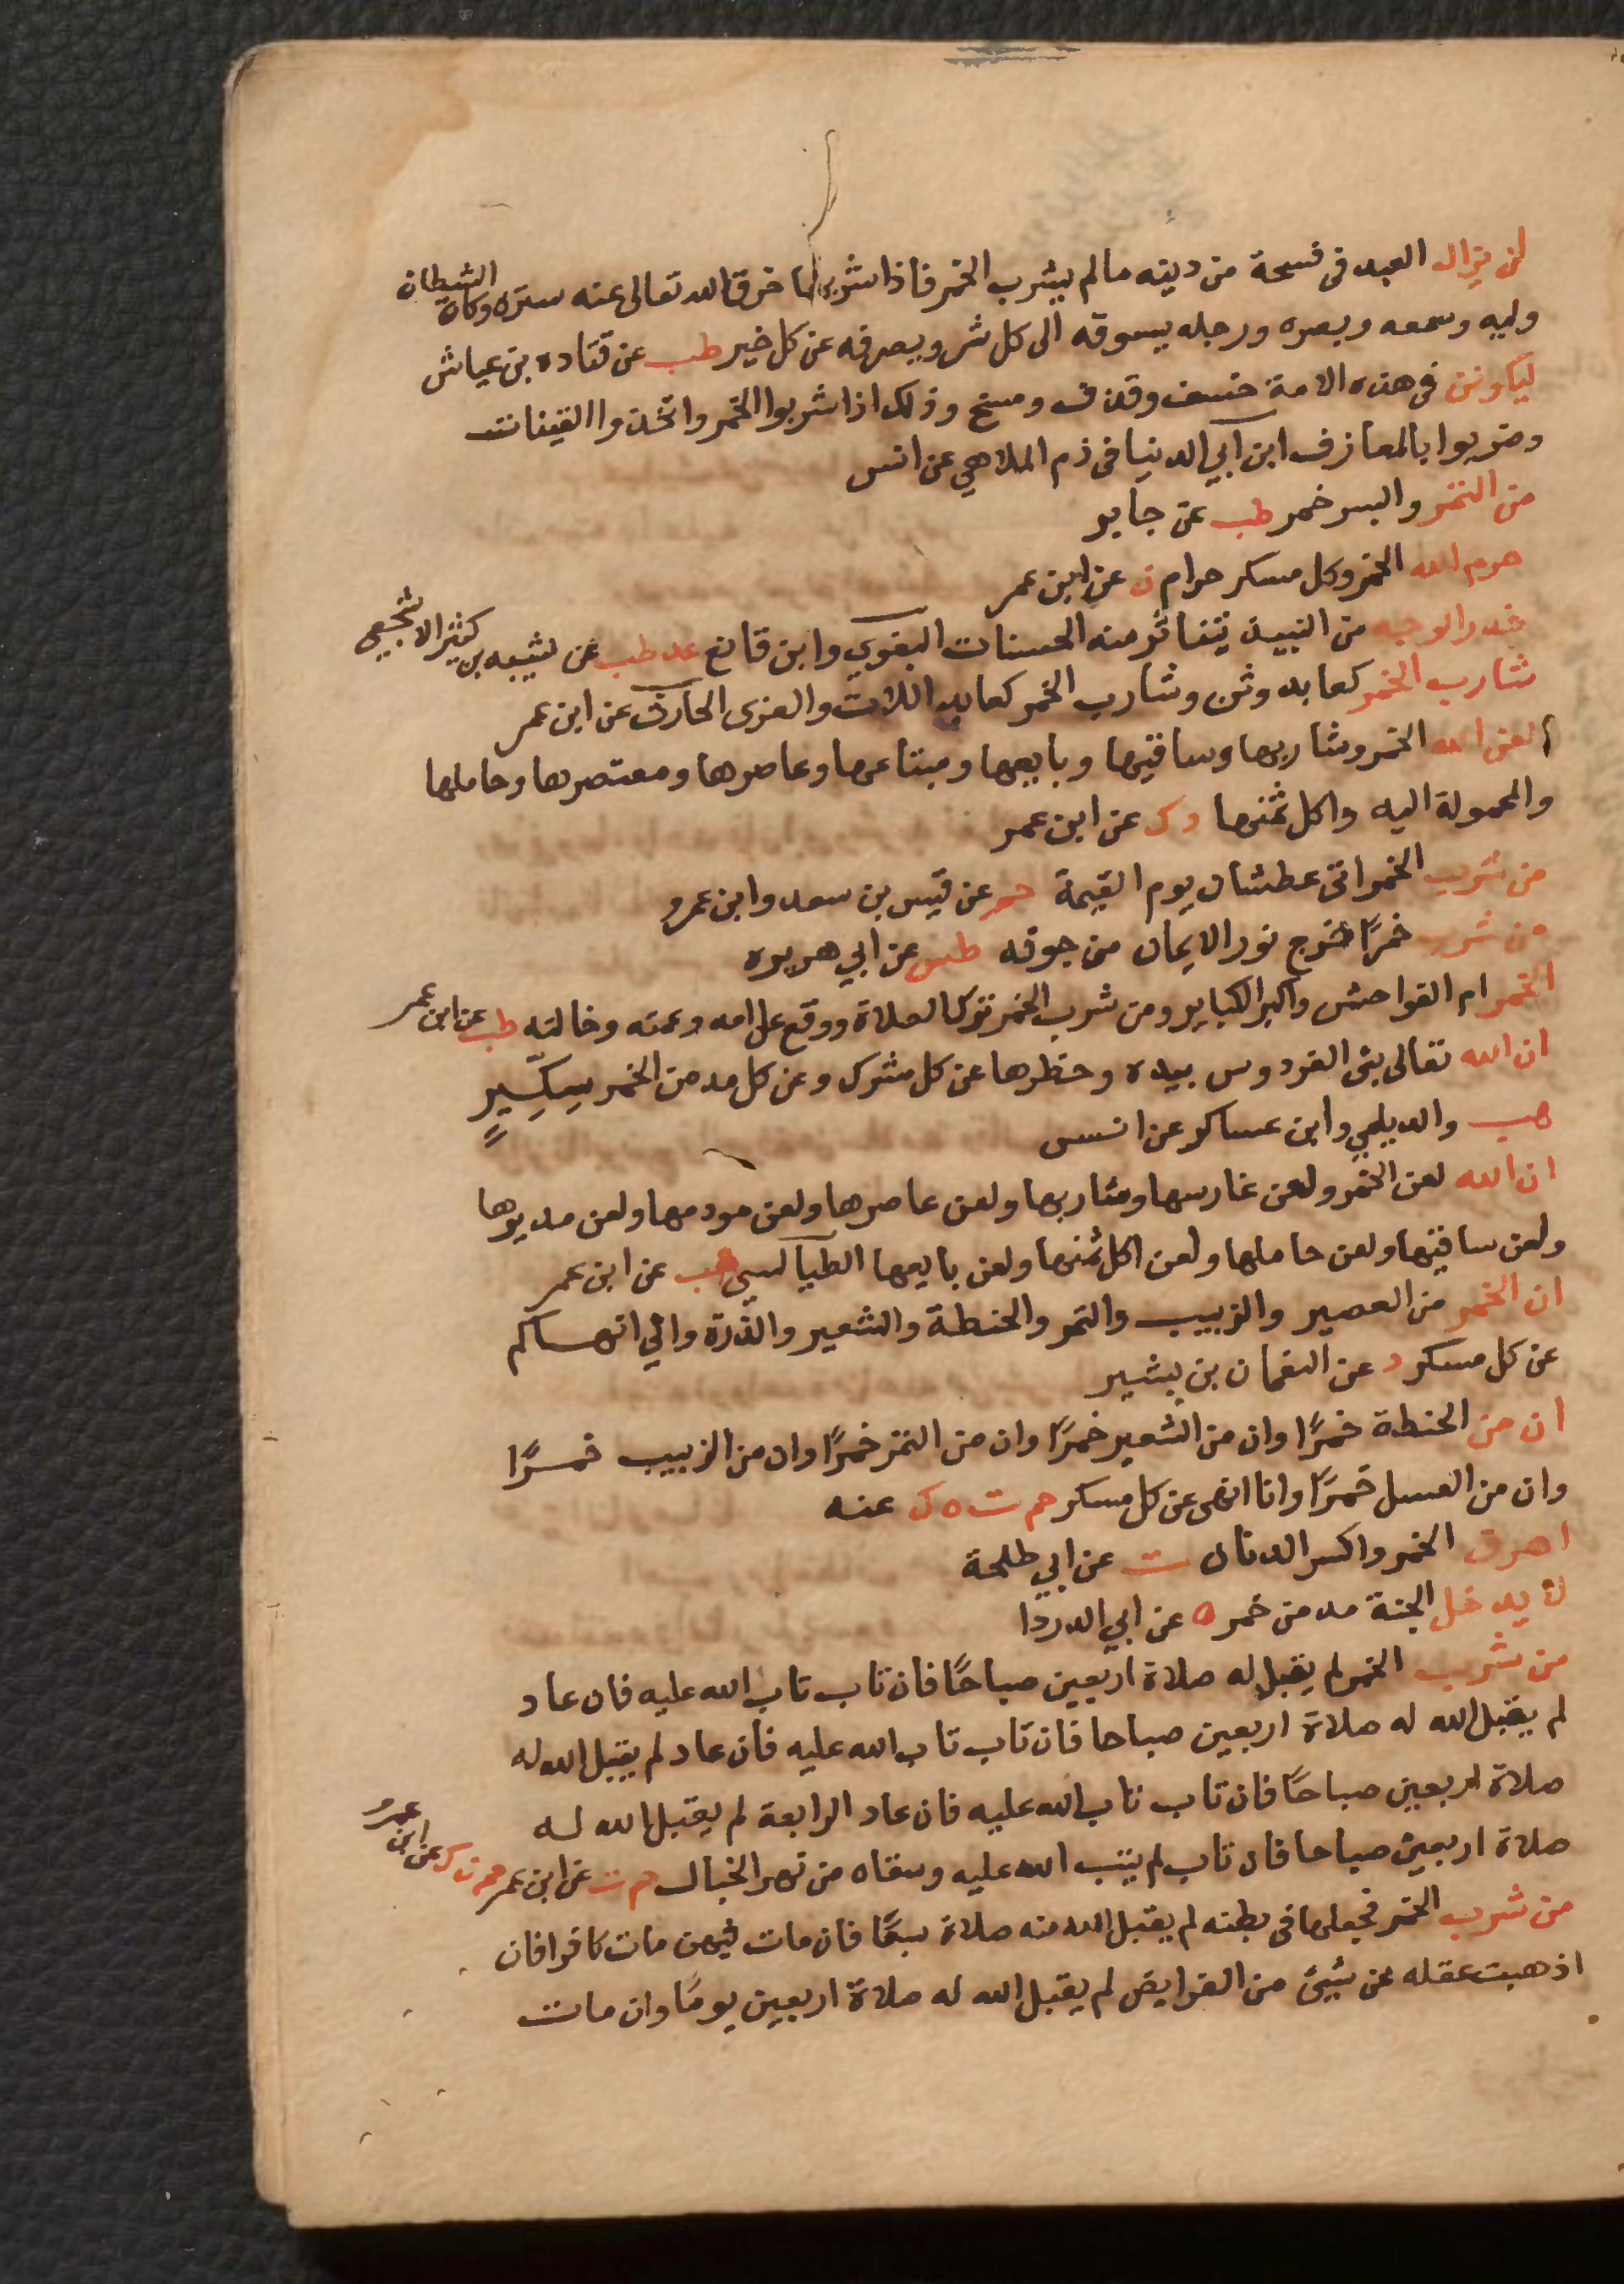 لن يزال العبد فى فسحة من دينه مالم يشرب الخمر فاذا شربها خرق الله تعالى عنه ستره وكان الشيطان
وليه وسمعه وبصره ورجله يسوقه الى كل شر ويصرفه عن كل خير طب عن قتاده بن عياش
ليكونن فى هذه الامة خسف وقذف ومسخ وذلك اذا شربوا الخمر واتخذوا القينات
وضربوا بالمعازف ابن ابي الدنيا فى ذم الملاهي عن انس
من التمر والبسر خمر طب عن جابر
حرم الله الخمر وكل مسكر حرام ن عن ابن عمر
خدر الوجه من النبيذ يتناثر منه الحسنات البغوي وابن قانع عد طب عن شيبه بن كثير الاشجعي
شارب الخمر كعابد وثن وشارب الخمر كعابد اللات والعزى الحارث عن ابن عمر
لعن الله الخمر وشاربها وساقيها وبايعها ومبتاعها وعاصرها ومعتصرها وحاملها
والمحمولة اليه واكل ثمنها د ك عن ابن عمر
من شرب الخمر اتى عطشان يوم القيمة حم عن قيس بن سعد وابن عمرو
من شرب خمرًا خرج نور الايمان من جوفه طس عن ابي هريره
الخمر ام الفواحش واكبر الكباير ومن شرب الخمر ترك الصلاة ووقع على امه وعمته وخالته طب عن ابن عمر
ان الله تعالى بنى الفردوس بيده وحظرها عن كل مشرك وعن كل مدمن الخمر سِكِّيرٍ
هب والديلمي وابن عساكر عن انس
ان الله لعن الخمر ولعن غارسها وشاربها ولعن عاصرها ولعن مودمها ولعن مديرها
ولعن ساقيها ولعن حاملها ولعن اكل ثمنها ولعن بايعها الطيالسي هب عن ابن عمر
ان الخمر من العصير والزبيب والتمر والحنطة والشعير والذرة واني انهاكم
عن كل مسكر د عن النعمان بن بشير
ان من الحنطة خمرًا وان من الشعير خمرًا وان من التمر خمرًا وان من الزبيب خمرًا
وان من العسل خمرًا وانا انهى عن كل مسكر حم ت ه ك عنه
اهرق الخمر واكسر الدنان ت عن ابي طلحة
لا يدخل الجنة مدمن خمر ه عن ابي الدردا
من شرب الخمر لم يقبل له صلاة اربعين صباحًا فان تاب تاب الله عليه فان عاد
لم يقبل الله له صلاة اربعين صباحا فان تاب تاب الله عليه فان عاد لم يقبل الله له
صلاة اربعين صباحًا فان تاب تاب الله عليه فان عاد الرابعة لم يقبل الله له
صلاة اربعين صباحا فان تاب لم يتب الله عليه وسقاه من نهر الخبال حم ت عن ابن عمر حم ن ك عن ابن عمرو
من شرب الخمر فجعلها فى بطنه لم يقبل الله منه صلاة سبعًا فان مات فيهن مات كافرا فان
اذهبت عقله عن شيئ من الفرايض لم يقبل الله له صلاة اربعين يومًا وان مات